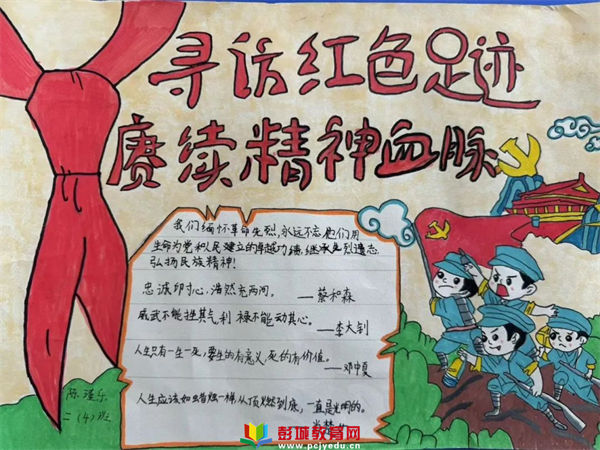 寻访红色足迹
赓续精神血脉
我们缅怀革命先烈,永远不忘他们用
生命为党和人民建立的卓越功绩,继承先烈遗志
弘扬民族精神!
忠诚印寸心,浩然充两间。
——蔡和森
威武不能挫其气,利禄不能动其心。
——李大钊
人生只有一生一死,要生的有意义,死的有价值。
——邓中夏
人生应该如蜡烛一样,从顶燃到底,一直是光明的。
陈
乐
二(4)班
彭城教育网
www.pcjyedu.cn